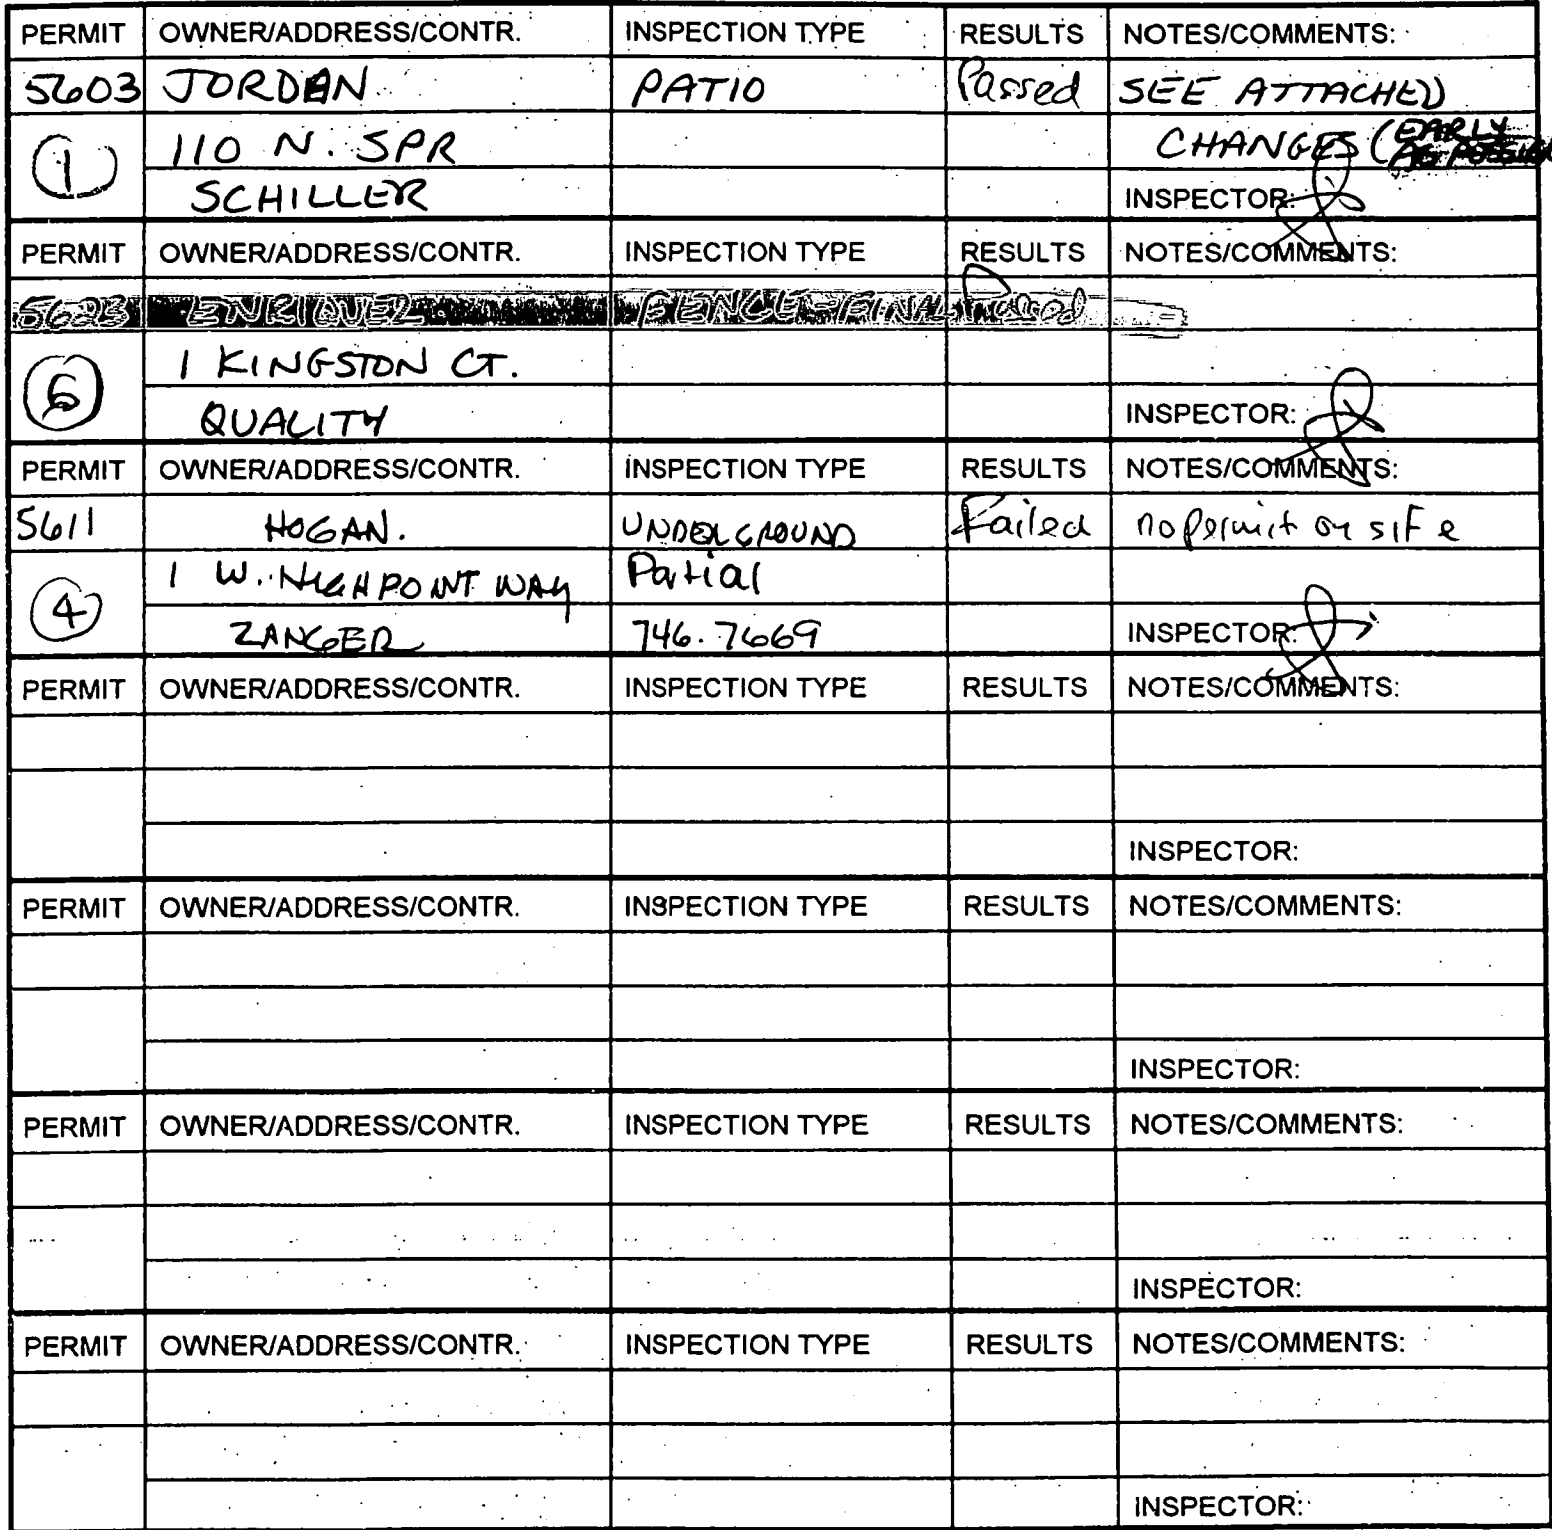 PERMIT OWNER/ADDRESS/CONTR. INSPECTION TYPE RESULTS NOTES/COMMENTS:
5603 JORDAN PATIO Passed SEE ATTACHED
① 110 N. SPR CHANGES (EARLY AS POSSIBLE
SCHILLER INSPECTOR:
PERMIT OWNER/ADDRESS/CONTR. INSPECTION TYPE RESULTS NOTES/COMMENTS:
5623 ENRIQUEZ FENCE-FINAL Passed
⑥ 1 KINGSTON CT.
QUALITY INSPECTOR:
PERMIT OWNER/ADDRESS/CONTR. INSPECTION TYPE RESULTS NOTES/COMMENTS:
5611 HOGAN. UNDERGROUND Failed no permit on site
④ 1 W. HIGHPOINT WAY Partial
ZANGER 746.7669 INSPECTOR:
PERMIT OWNER/ADDRESS/CONTR. INSPECTION TYPE RESULTS NOTES/COMMENTS:
INSPECTOR:
PERMIT OWNER/ADDRESS/CONTR. INSPECTION TYPE RESULTS NOTES/COMMENTS:
INSPECTOR:
PERMIT OWNER/ADDRESS/CONTR. INSPECTION TYPE RESULTS NOTES/COMMENTS:
INSPECTOR:
PERMIT OWNER/ADDRESS/CONTR. INSPECTION TYPE RESULTS NOTES/COMMENTS:
INSPECTOR: